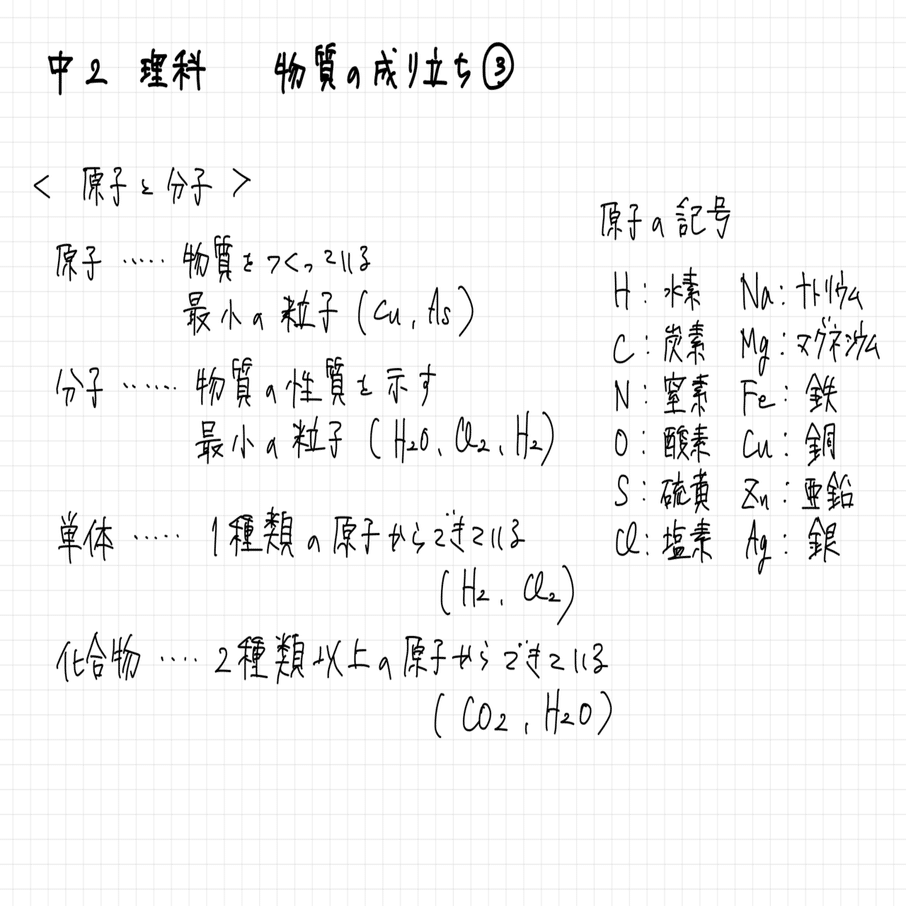 中2 理科 物質の成り立ち③
< 原子と分子 >
原子 ‥‥‥ 物質をつくっている
最小の粒子 (Cu, As)
分子 ‥‥‥ 物質の性質を示す
最小の粒子 (H₂O, Cl₂, H₂)
単体 ‥‥‥ 1種類の原子からできている
(H₂, Cl₂)
化合物 ‥‥ 2種類以上の原子からできている
(CO₂, H₂O)
原子の記号
H: 水素 Na: ナトリウム
C: 炭素 Mg: マグネシウム
N: 窒素 Fe: 鉄
O: 酸素 Cu: 銅
S: 硫黄 Zn: 亜鉛
Cl: 塩素 Ag: 銀